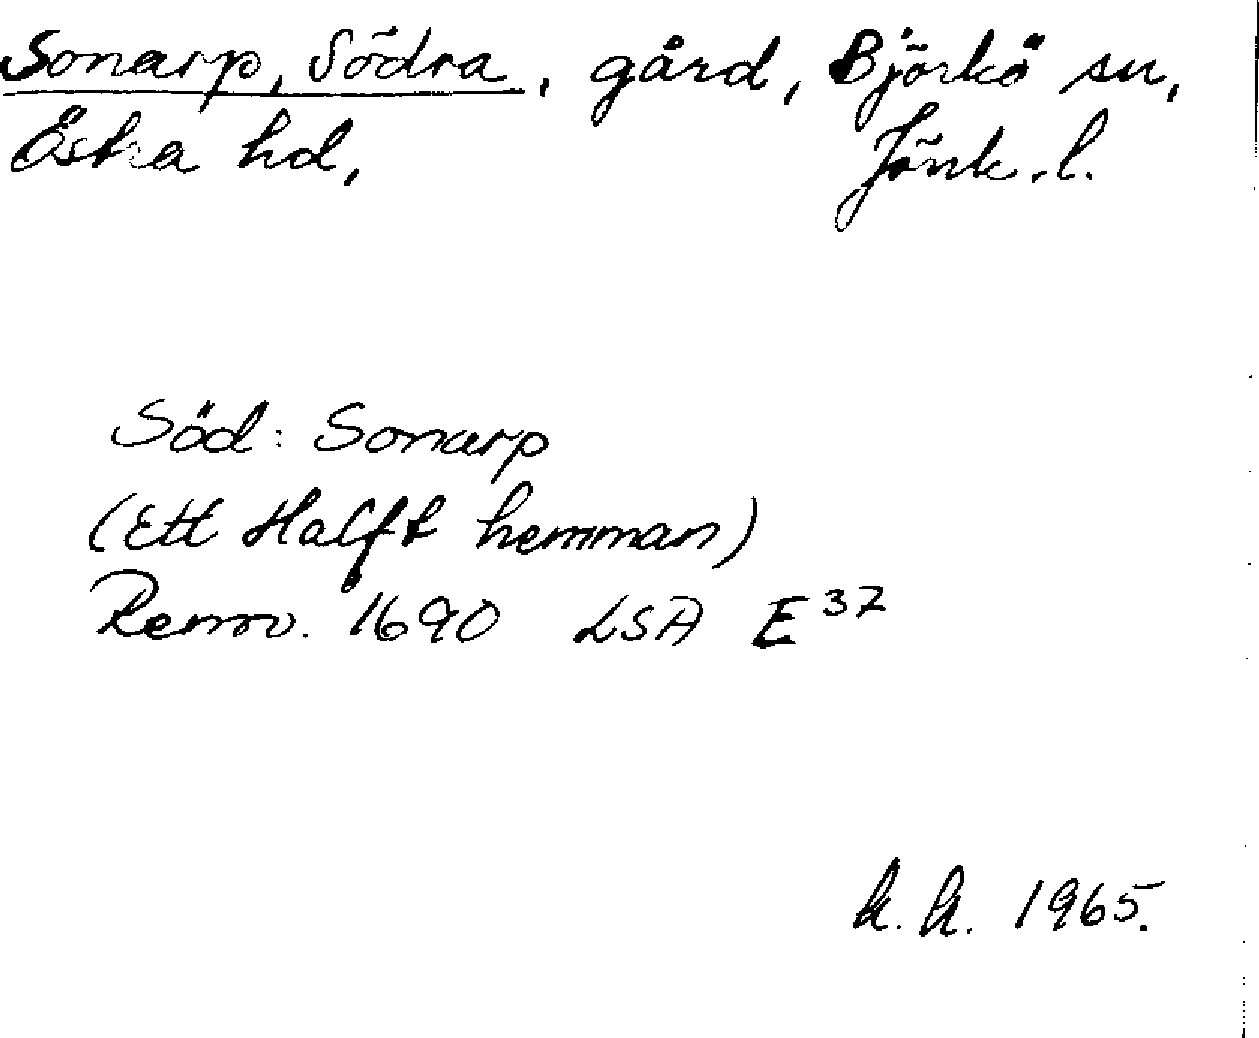 Sonarp, Södra, gård, Björkö sn,
Östra hd, Jönk. l.
Söd: Sonarp
(Ett Halft hemman)
Renov. 1690 LSA E 37
k. k. 1965.